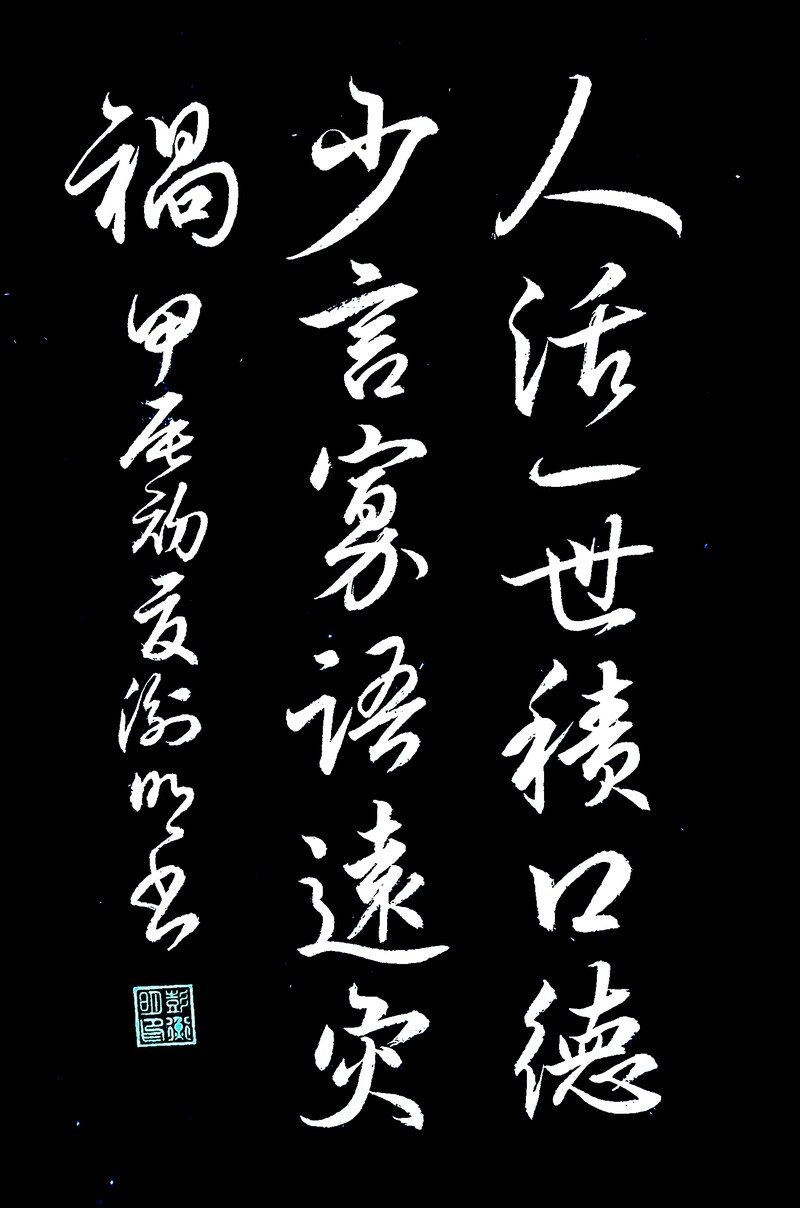 人活一世積口德
少言寡語遠灾
禍 甲辰初夏衡明书
彭衡明印